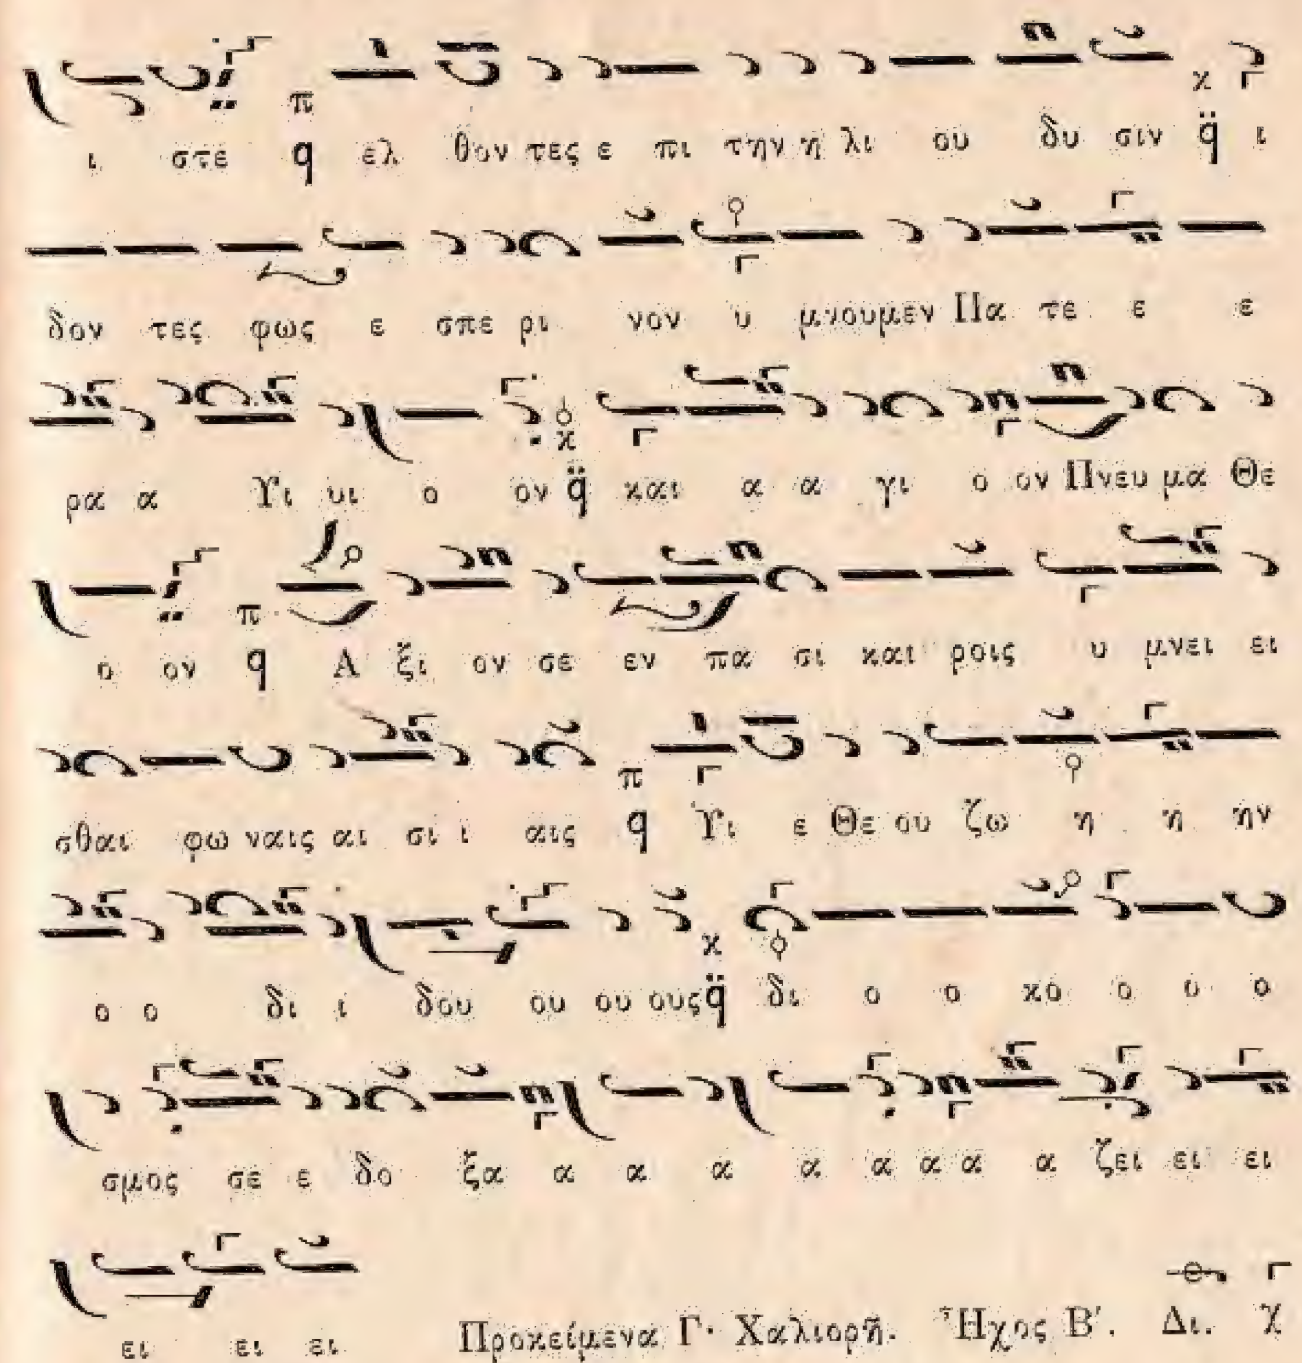 ι στε q ελ θον τες ε πι την η λι ου δυ σιν q̈ ι
δον τες φως ε σπε ρι νον υ μνουμεν Πα τε ε ε
ρα α Υι υι ο ον q̈ και α α γι ο ον Πνευ μα Θε
ο ον q Α ξι ον σε εν πα σι και ροις υ μνει ει
σθαι φω ναις αι σι ι αις q Υι ε Θε ου ζω η η ην
ο ο δι ι δου ου ου ους q̈ δι ο ο κο ο ο ο
σμος σε ε δο ξα α α α α α α α α ζει ει ει
ει ει ει Προκείμενα Γ· Χαλιορῆ. Ἦχος Β΄. Δι.